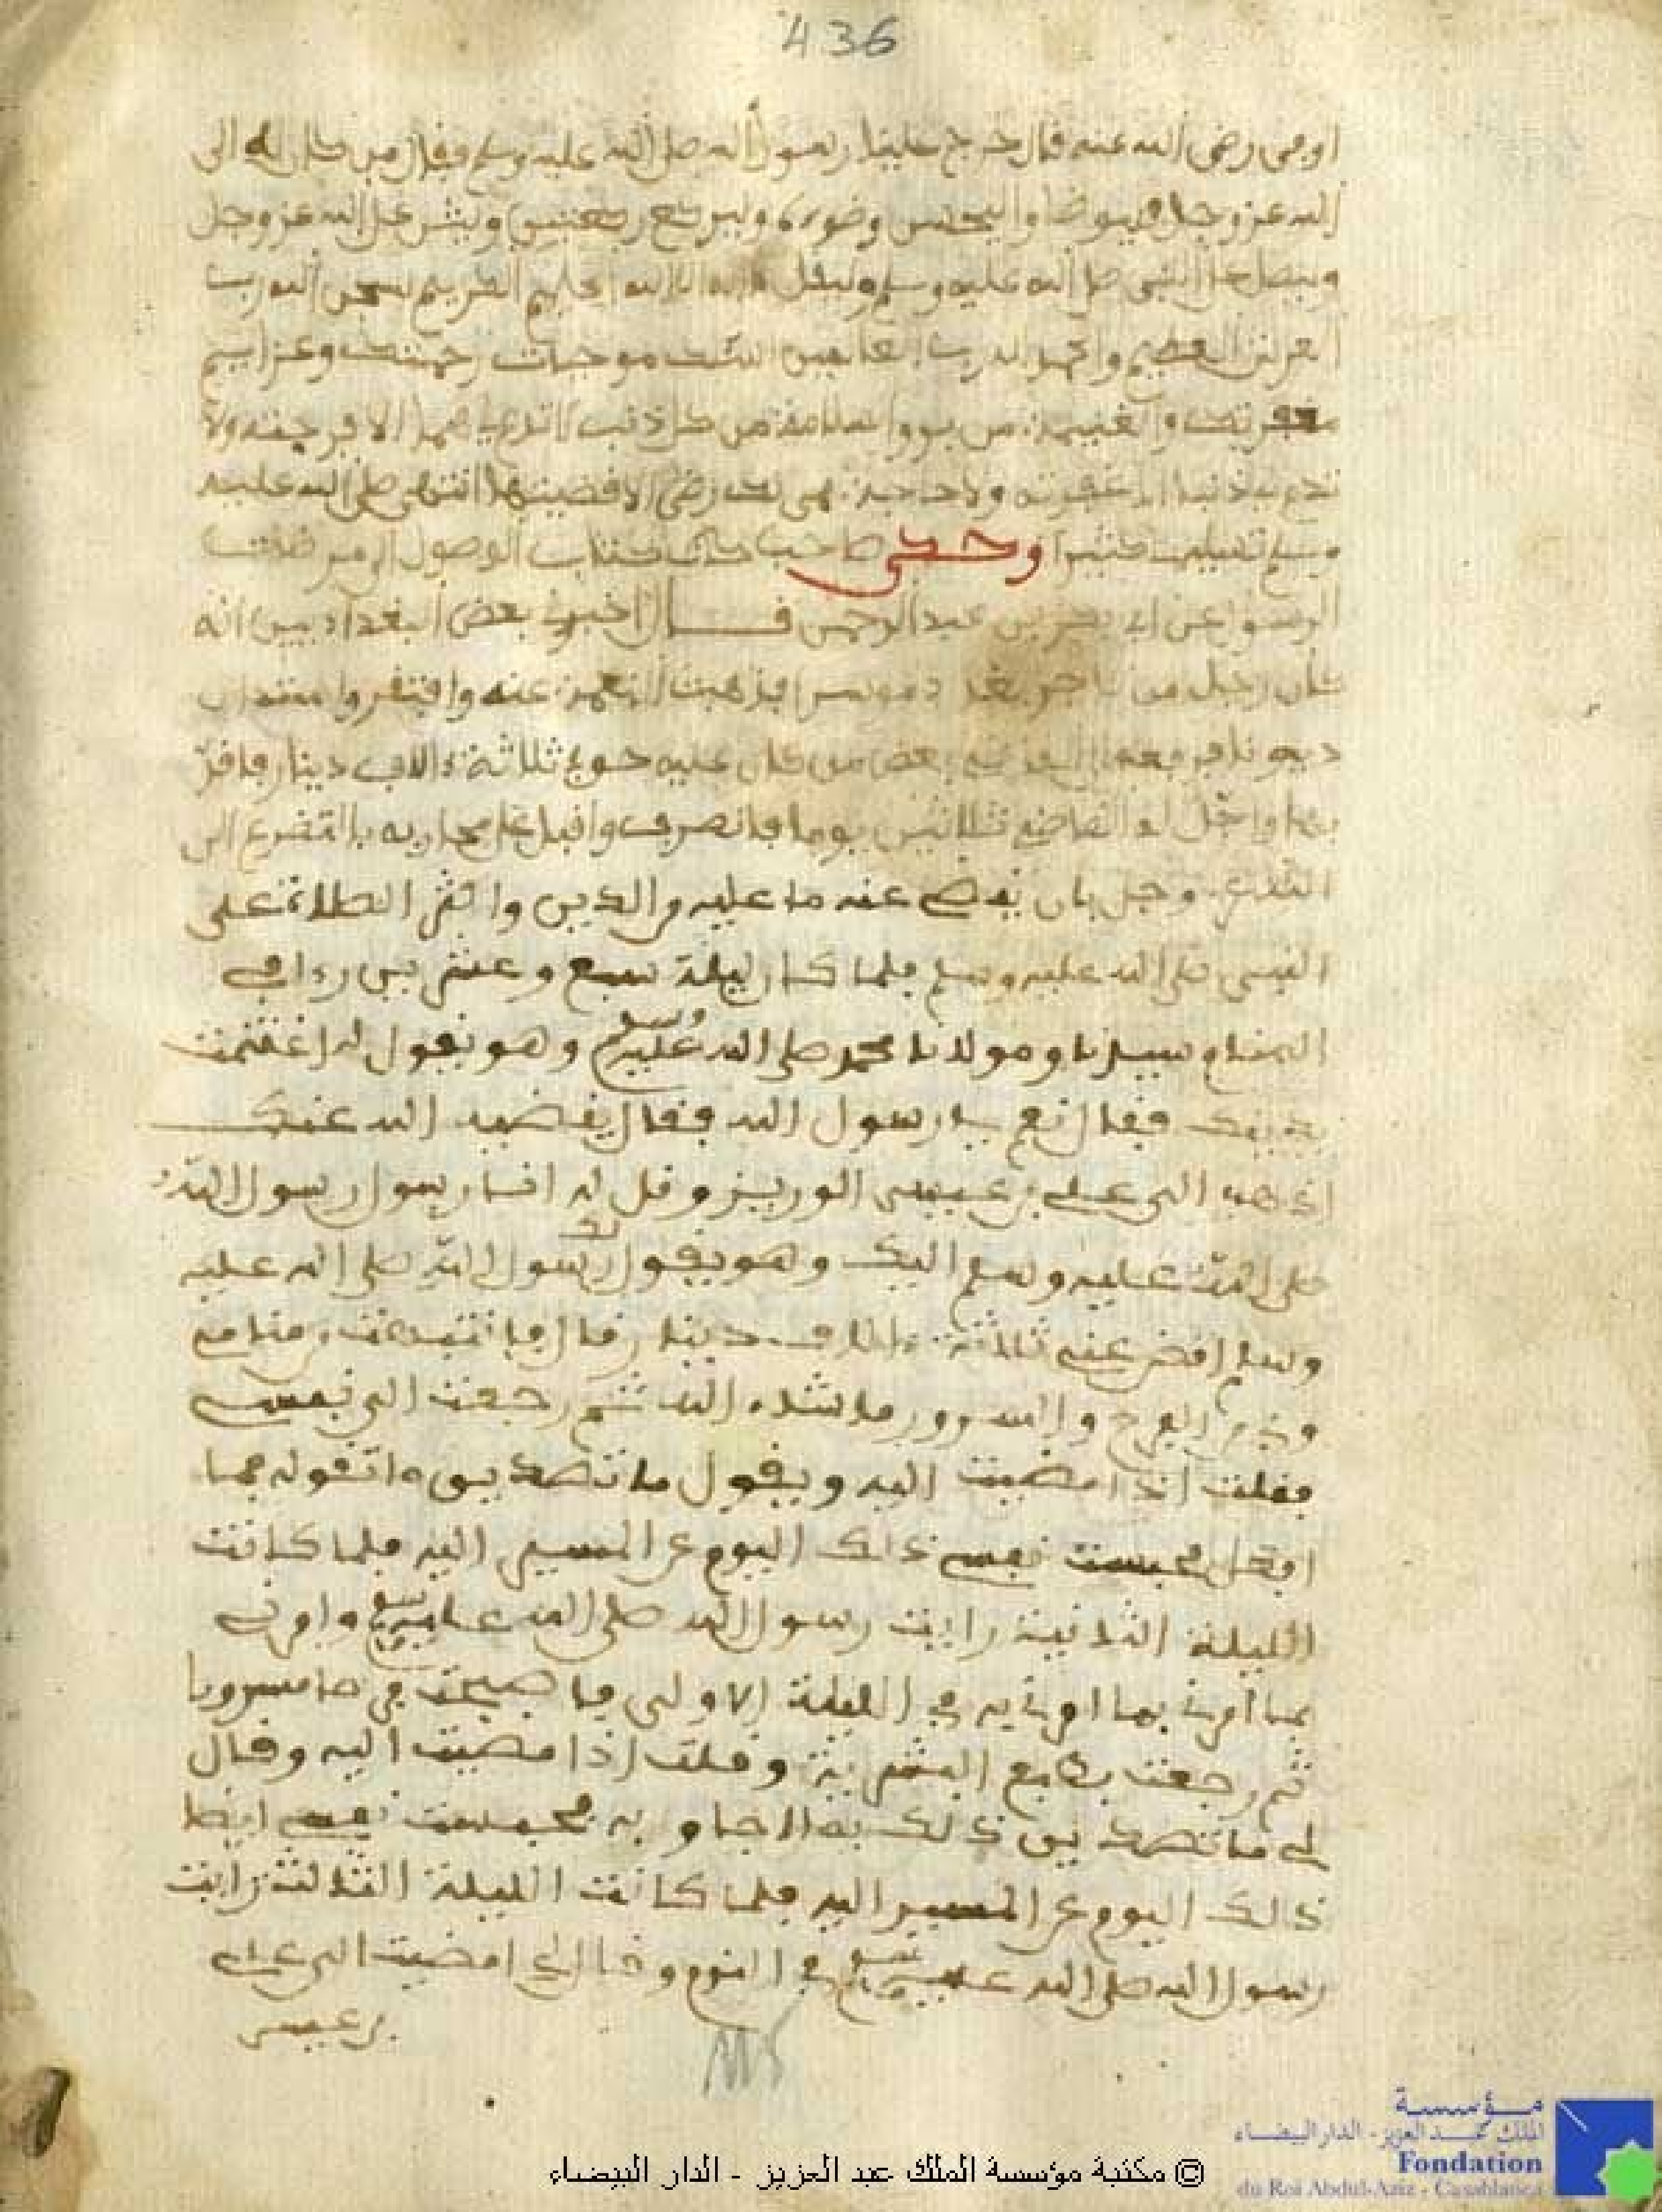 436
اوفى رضي الله عنه قال خرج علينا رسول الله صلى الله عليه وسلم فقال من كان له الى
الله عز وجل فليتوضا وليحسن وضوءه وليركع ركعتين وليثن على الله عز وجل
وليصل على النبي صلى الله عليه وسلم وليقل لا اله الا الله الحليم الكريم سبحن الله رب
العرش العظيم والحمد لله رب العالمين اسئلك موجبات رحمتك وعزايم
مغفرتك والغنيمة من بر والسلامة من كل ذنب لا تدع لي هما الا فرجته ولا
تدع لي ذنبا الا غفرته ولا حاجة هي لك رضى الا قضيتها انتهى صلى الله عليه
وسلم تسليما كثيرا وحكى صاحب كتاب الوصول
الرسول عن ابي بكر بن عبد الرحمن قال اخبرني بعض البغداديين انه
كان رجل من تاجر بغداد موسرا فذهبت النعمة عنه وافتقر
ديونا فرفعه الى القاضي بعض من كان عليه حوج ثلاثة ءالاف دينار فاقر
بها واجل له القاضي ثلاثين يوما فانصرف واقبل على محرابه بالتضرع الى
الله عز وجل بان يقضي عنه ما عليه من الدين واكثر الصلاة على
النبي صلى الله عليه وسلم فلما كان ليلة سبع وعشرين راى في
المنام سيدنا ومولانا محمد صلى الله عليه وسلم وهو يقول له اغتممت
بدينك فقال نعم يا رسول الله فقال يقضيه الله عنك
اذهب الى علي بن عيسى الوزير وقل له انا رسول رسول الله
صلى الله عليه وسلم اليك وهو يقول لك رسول الله صلى الله عليه
وسلم اقض عني ثلاثة ءالاف دينار قال فانتبهت من منامي
وبي من الفرح والسرور ما شاء الله ثم رجعت الى نفسي
فقلت اذا مضيت اليه ويقول ما تصديق ما تقوله فما
افعل فحبست نفسي ذلك اليوم عن المسير اليه فلما كانت
الليلة الثانية رايت رسول الله صلى الله عليه وسلم وامرني
بما امرني به في الليلة الاولى فاصبحت فرحا مسرورا
ثم رجعت بطبع البشرية وقلت اذا مضيت اليه وقال
لي ما تصديق ذلك بم اجاوبه فحبست نفسي ايضا
ذلك اليوم عن المسير اليه فلما كانت الليلة الثالثة رايت
رسول الله صلى الله عليه وسلم في النوم وقال لي امضيت الى علي
بن عيسى
مؤسسة
الملك عبد العزيز - الدار البيضاء
Fondation
du Roi Abdul-Aziz - Casablanca
© مكتبة مؤسسة الملك عبد العزيز - الدار البيضاء